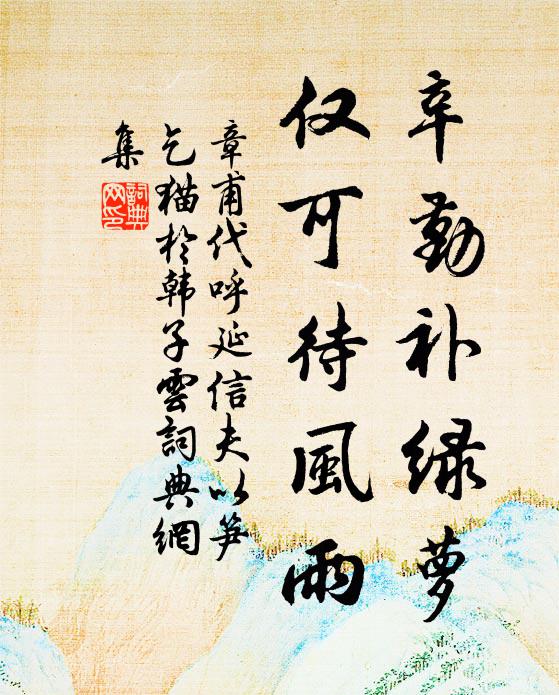 辛勤补绿萝
仅可待風雨
章甫代呼延信夫以笋
乞猫於韩子雲詞典網
集
詞典網印